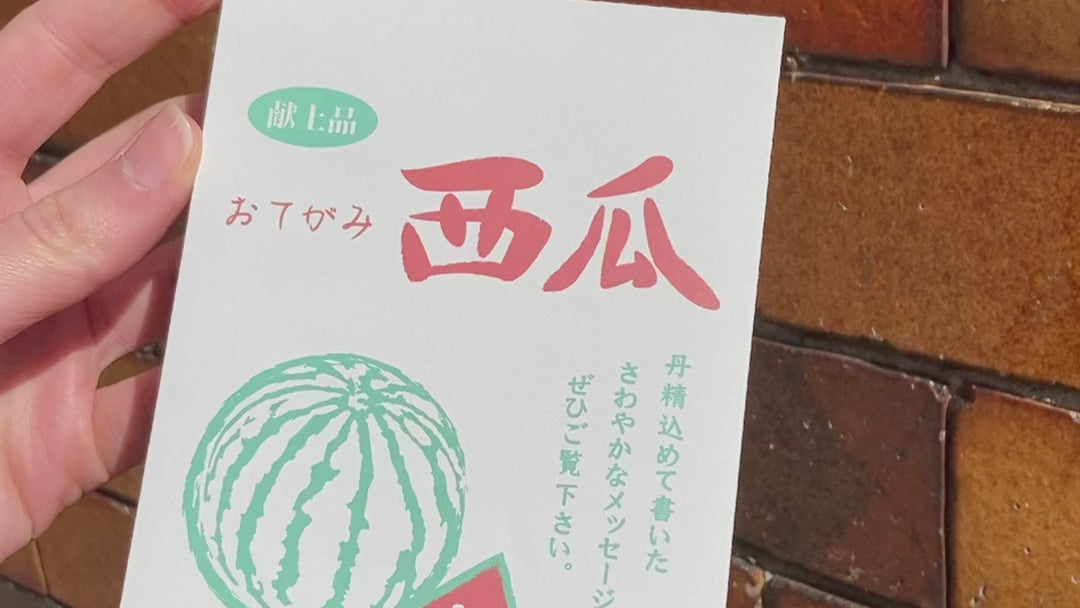 献上品
おてがみ
西瓜
丹精込めて書いた
さわやかなメッセージ
ぜひご覧下さい。